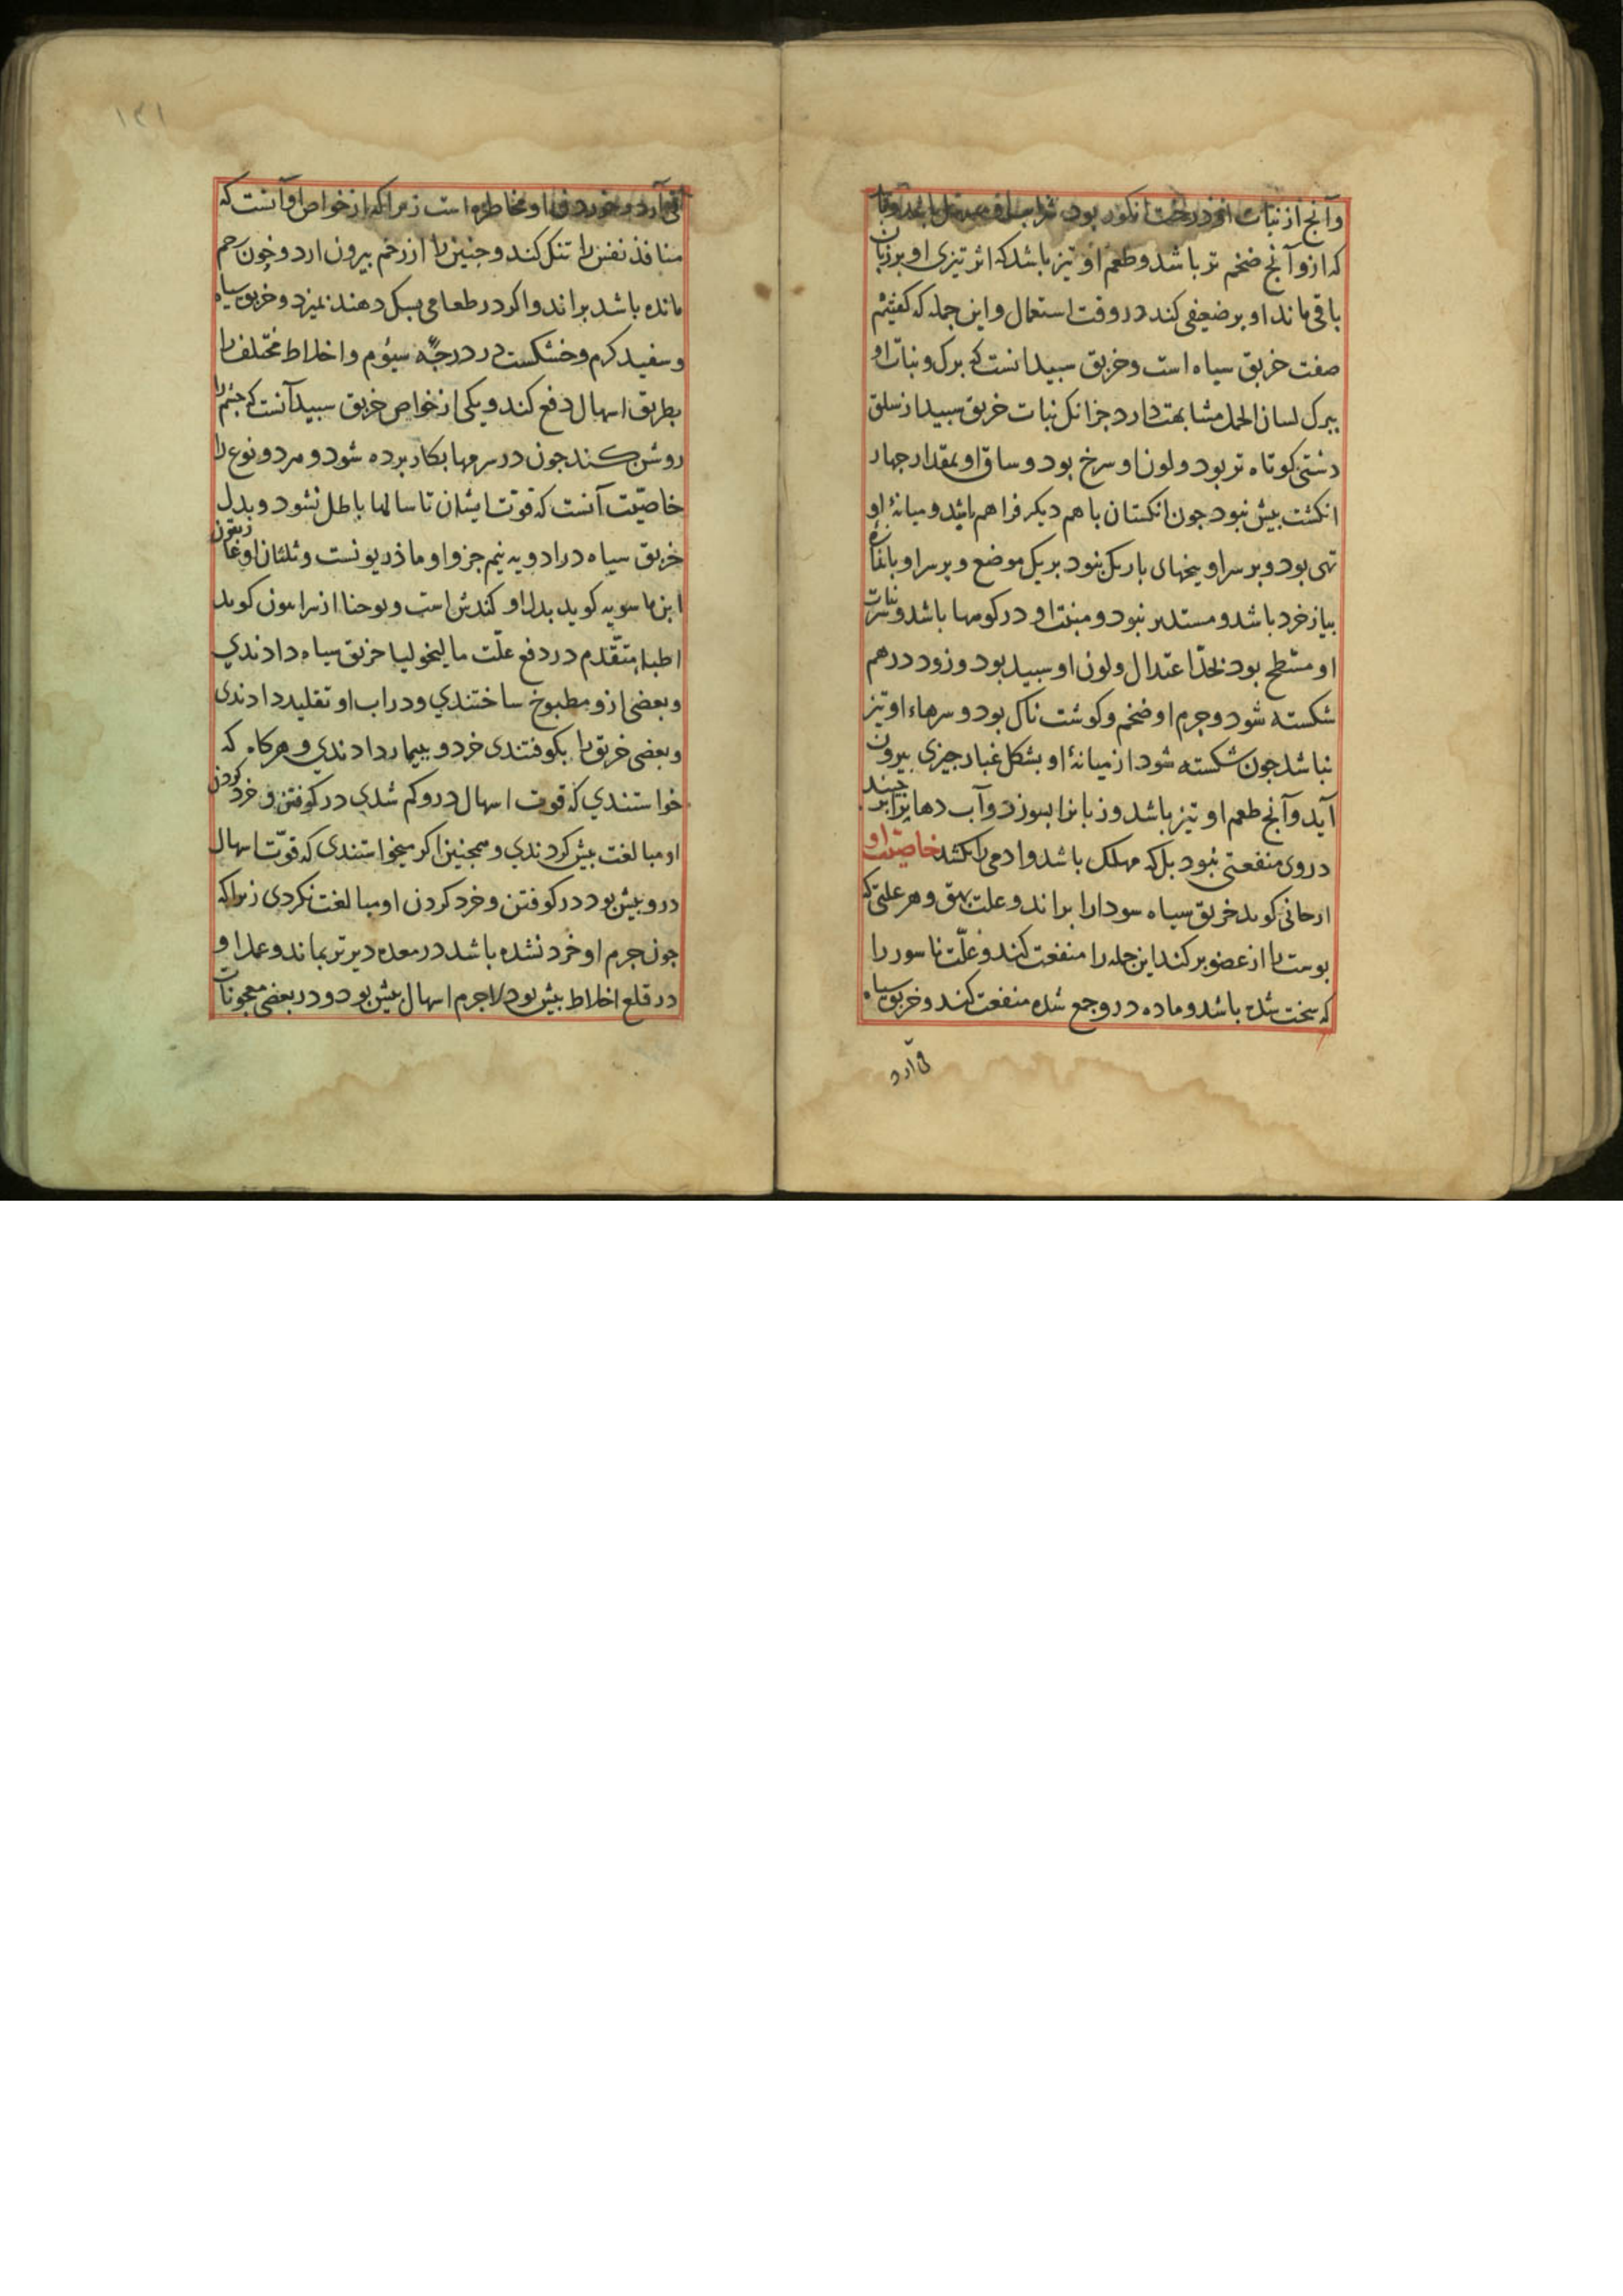 وآنج از نبات او در درخت انکور بود شراب
که ازو آنج ضخم تر باشد وطعم او تیز باشد که اثر تیزی او بر زبان
باقی ماند او بر ضعیفی کند در وقت استعمال و این جمله که کفتیم
صفت خربق سیاه است وخربق سبید انست که برک ونبات او
ببرک لسان الحمل مشابهت دارد جز انک نبات خربق سبید از سلق
دشتی کوتاه تر بود ولون او سرخ بود وساق او بمقدار جهار
انکشت بیش نبود جون انکستان باهم دیکر فراهم باشد ومیانهٔ او
تهی بود وبر سر او بیخهای باریک بنود بر یک موضع وبر سر او
بیاز خرد باشد ومستدیر نبود ومنبت او در کوهها باشد ونبات
او مسطح بود بحدّ اعتدال ولون او سبید بود وزود درهم
شکسته شود وجرم او ضخم وکوشت ناک بود وسرهاء او تیز
نباشد جون شکسته شود از میانهٔ او بشکل غبار جیزی بیرون
آید وآنج طعم او تیز باشد وزبانرا بسوزد وآب دهانرا بر
دروی منفعتی نبود بل که مهلک باشد وادمی را بکشد خاصیت او
ارجانی کوید خربق سیاه سودارا براند وعلت بهق وهر علتی که
بوست را از عضو بر کند این جمله را منفعت کند وعلّت ناسور را
که سخت شده باشد وماده درو جمع شده منفعت کند وخربق سیاه
قی آرد
۱۲۱
قی آرد وخوردن او مخاطره است زیرا که از خواص او آنست که
منافذ نفس را تنک کند وجنین را از رحم بیرون ارد وجون رحم
مانده باشد براند واکر در طعامی بسک دهند بمیرد وخربق سیاه
وسفید کرم وخشکست در درجهٔ سیؤم واخلاط مختلف را
بطریق اسهال دفع کند ویکی از خواص خربق سبید آنست که جشم را
روشن کند جون در سرمها بکار برده شود و هر دو نوع را
خاصیّت آنست که قوّت ایشان تا سالها باطل نشود وبدل
خربق سیاه در ادویه نیم جزو او ماذریونست وثلثان او غاریقون
ابن ماسویه کوید بدل او کندش است ویوحنا از سرابیون کوید
اطباء متقدّم در دفع علّت مالیخولیا خربق سیاه دادندی
وبعضی ازو مطبوخ ساختندی ودر اب او تقلید دادندی
وبعضی خربق را بکوفتندی خرد وبیمار دادندی وهرکاه که
خواستندی که قوت اسهال درو کم شدی در کوفتن وخرد کردن
او مبالغت بیش کردندی وهمجنین اکر میخواستندی که قوّت اسهال
درو بیش بود در کوفتن وخرد کردن او مبالغت نکردی زیرا که
جون جرم او خرد نشده باشد در معده دیرتر بماند وعمل او
در قلع اخلاط بیش بود لاجرم اسهال بیش بود ودر بعضی معجونات